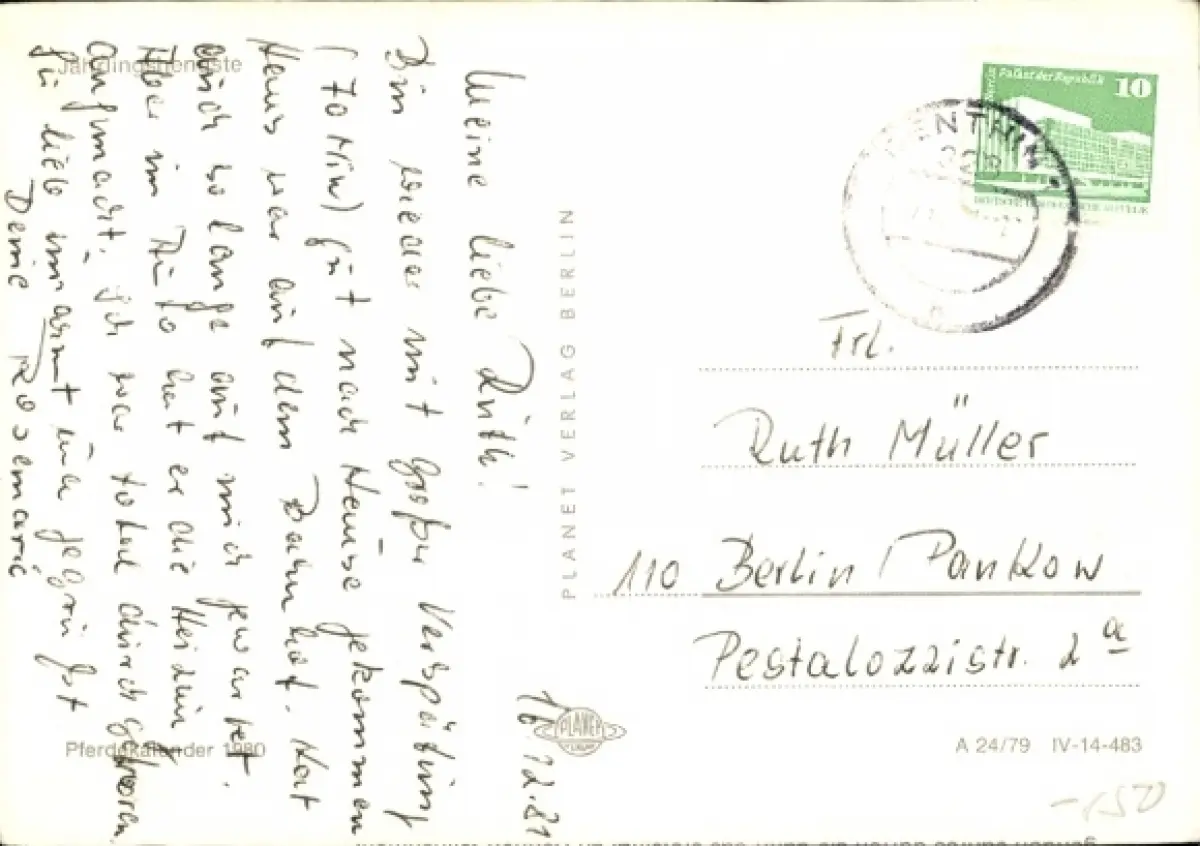 Jährlingshengste
16.12.81
Meine liebe Ruth!
Bin wieder mit großer Verspätung
(70 Min) gut nach Hause gekommen
Hans war auf dem Bahnhof. Hat
auch so lange auf mich gewartet.
Aber im Auto hat er die Heizung
angemacht. Ich war total durchgefroren.
Sei lieb umarmt und gegrüßt
Deine Rosemarie
Pferdekalender 1980
PLANET VERLAG BERLIN
PLANET
Berlin
Palast der Republik
10
Frl.
Ruth Müller
110 Berlin Pankow
Pestalozzistr. 2a
A 24/79 IV-14-483